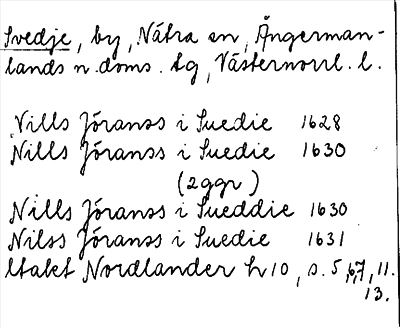 Svedje, by, Nätra sn, Ångerman-
lands n. doms. tg, Västernorrl. l.
Nills Jöranss i Suedie 1628
Nills Jöranss i Suedie 1630
(2ggr)
Nills Jöranss i Sueddie 1630
Nilss Jöranss i Suedie 1631
ltakt Nordlander h 10, s. 5, 6, 7, 11.
13.